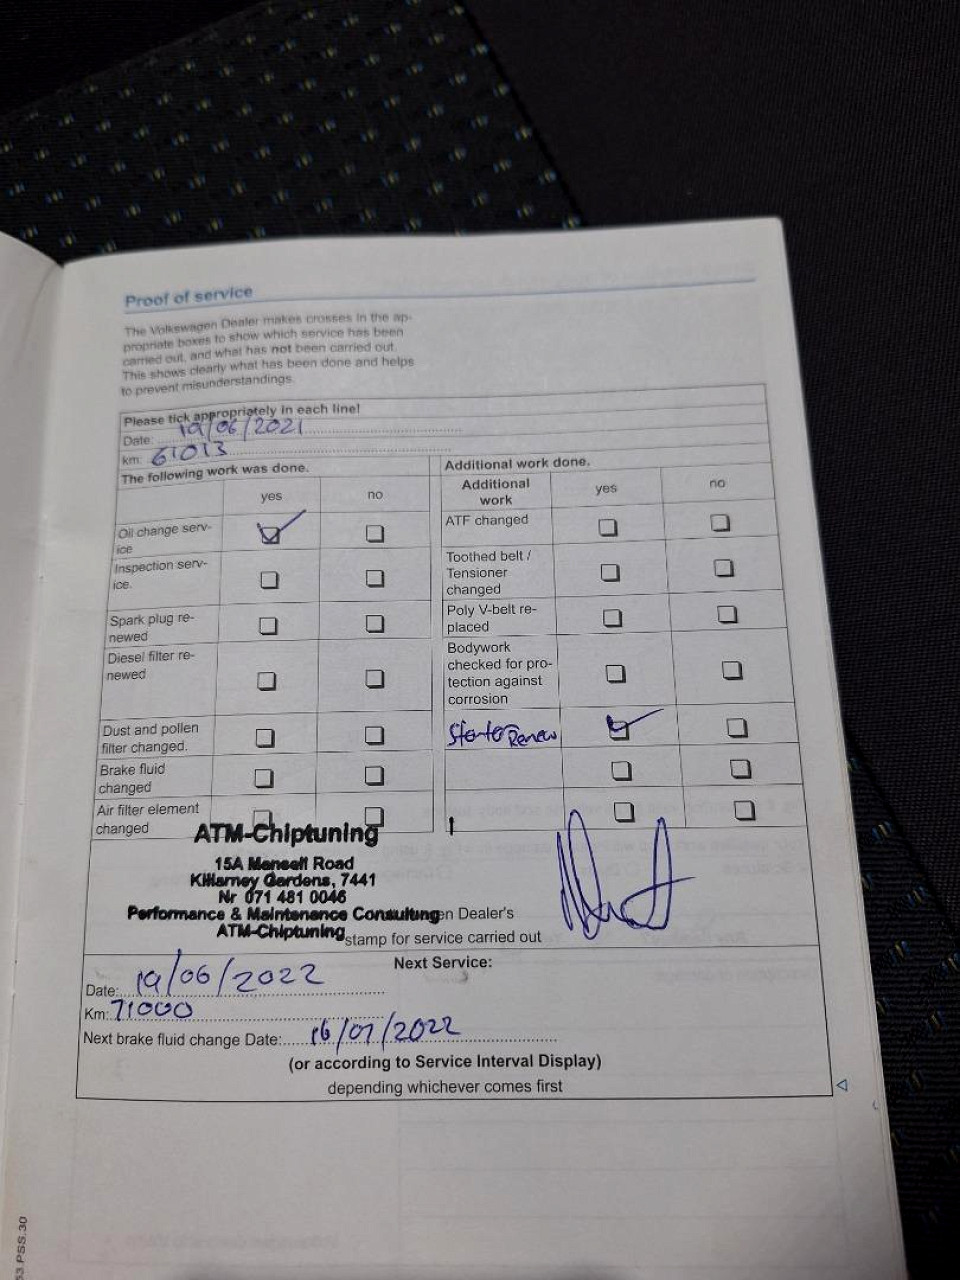 Proof of service
The Volkswagen Dealer makes crosses in the ap-
propriate boxes to show which service has been
carried out, and what has not been carried out.
This shows clearly what has been done and helps
to prevent misunderstandings.
Please tick appropriately in each line!
Date: 19/06/2021
km: 61013
The following work was done.
yes no
Oil change serv-
ice
Inspection serv-
ice.
Spark plug re-
newed
Diesel filter re-
newed
Dust and pollen
filter changed.
Brake fluid
changed
Air filter element
changed
Additional work done.
Additional
work
yes no
ATF changed
Toothed belt /
Tensioner
changed
Poly V-belt re-
placed
Bodywork
checked for pro-
tection against
corrosion
Renew
ATM-Chiptuning
15A Mansell Road
Killarney Gardens, 7441
Nr 071 481 0046
Performance & Maintenance Consulting
en Dealer's
ATM-Chiptuning
stamp for service carried out
Next Service:
Date: 19/06/2022
Km: 71000
Next brake fluid change Date: 16/07/2022
(or according to Service Interval Display)
depending whichever comes first
53.PSS.30